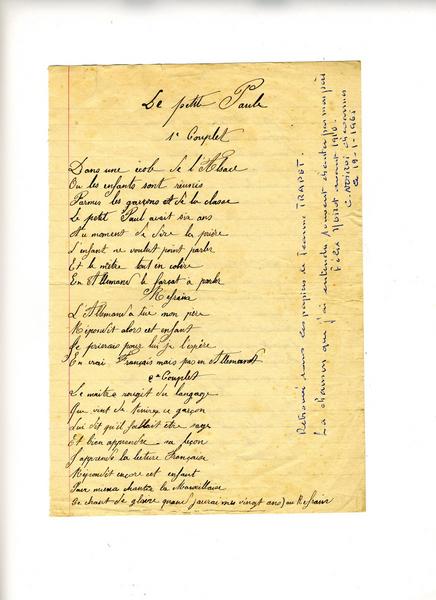 Le petit Paule
1e Couplet
Dans une écol de l'Alsace
Ou les enfants sont réunis
Parmis les garçons et de la classe
Le petit Paul avait six ans
Au moment de dire la prière
L'enfant ne voulut point parler
Et le mètre tout en colère
En Allemand le força à parler
Refrain
L'Allemand a tué mon père
Répondit alors cet enfant
Je prierais pour lui je l'espère
En vrai Français mais pas en Allemand
2e Couplet
Le maitre rougit du langage
Que vint de tenir ce garçon
Lui dit qu'il fallait être sage
Et bien apprendre sa leçon
J'apprends la lecture Française
Répondit encore cet enfant
Pour mieux chanter la Marseillaise
Ce chant de gloire quand j'aurai mes vingt ans au Refrain
Retrouvé dans les papiers de Jeanne TRAPET.
La chanson que j'ai entendu souvent chanter par mon père
Félix Noirot avant 1940.
C. NOIROT
Le 19-1-1961